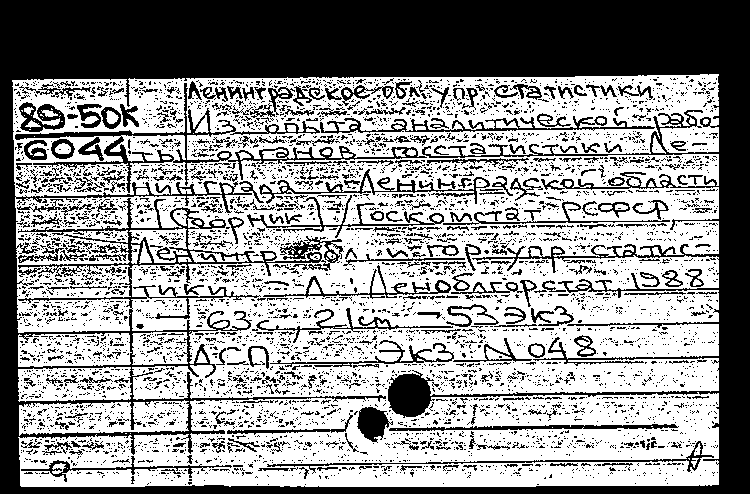 Ленинградское обл. упр. статистики.
89-50к
6044
Из опыта аналитической рабо-
ты органов госстатистики Ле-
нинграда и Ленинградской области
[Сборник] / Госкомстат РСФСР,
Ленингр. обл. и гор. упр. статис-
тики. - Л.: Леноблгорстат, 1988
. - 63 с., 21 cm - 53 экз.
ДСП. Экз. N 048.